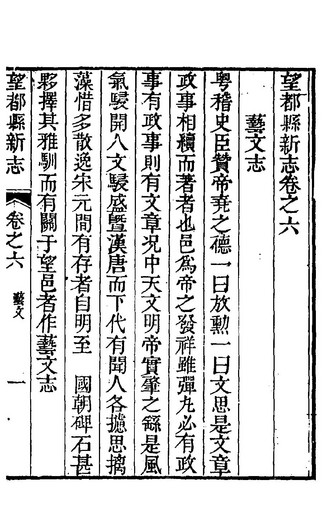 望都縣新志卷之六
藝文志
粤稽史臣贊帝堯之德一曰放勲一曰文思是文章
政事相續而著者也邑為帝之發祥雖彈丸必有政
事有政事則有文章况中天文明帝實肇之繇是風
氣駸開人文駸盛暨漢唐而下代有聞人各攄思摛
藻惜多散逸宋元間有存者自明至 國朝碑石甚
夥擇其雅馴而有關于望邑者作藝文志
望都縣新志 卷之六 藝文 一